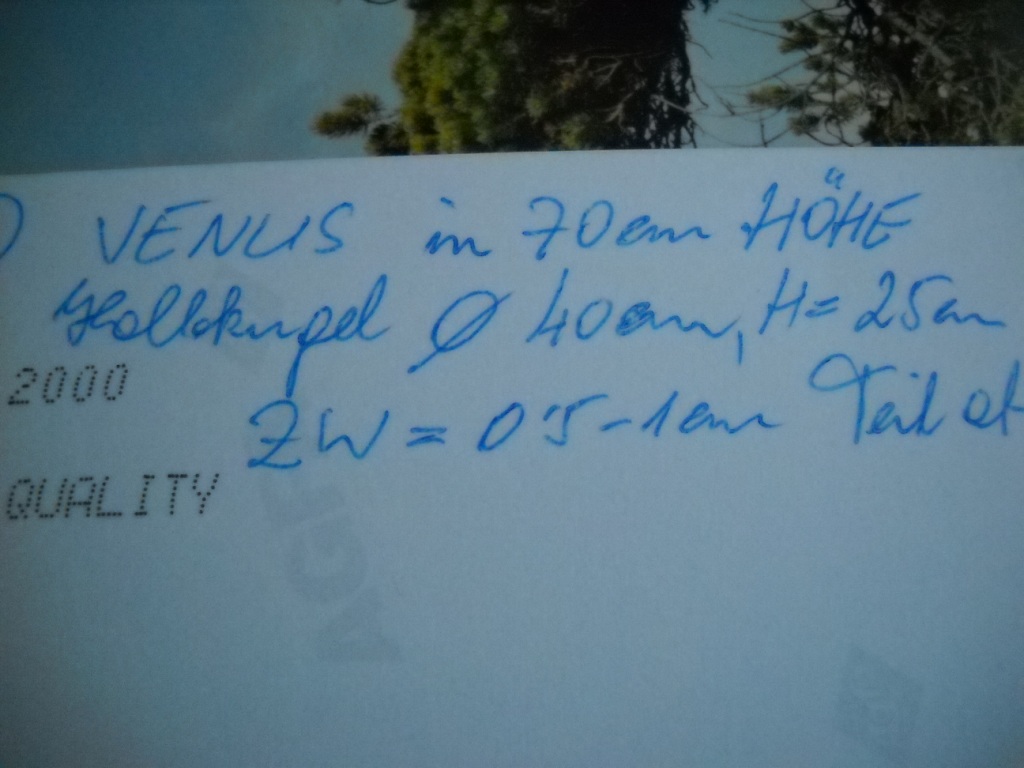 ) VENUS in 70cm HÖHE
Halbkugel Ø 40cm, H= 25cm
2000
ZW = 0'5-1cm Teil ab
QUALITY
AGF